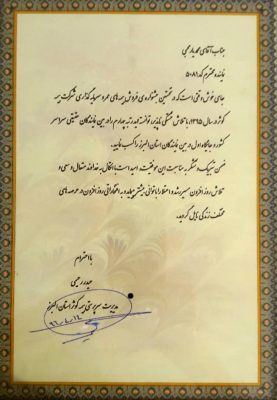 جناب آقای محمد یار محبی
نماینده محترم کد ۵۰۸۱
جای خوش وقتی است که در نخستین جشنواره ی فروش بیمه های عمر و سرمایه گذاری شرکت بیمه
کوثر در سال ۱۳۹۵ با تلاش خستگی ناپذیر توانسته اید رتبه چهارم را در بین نمایندگان حقیقی سراسر
کشور و جایگاه اول در بین نمایندگان استان البرز را کسب نمایید.
ضمن تبریک و تشکر به مناسبت این موفقیت، امید است با اتکال به خداوند متعال و سعی و
تلاش روز افزون مسیر رشد و اعتلا را با توانی بیشتر پیموده و به افتخاراتی روز افزون در عرصه های
مختلف زندگی نایل گردید.
با احترام
حیدر رحیمی
مدیریت سرپرستی بیمه کوثر استان البرز